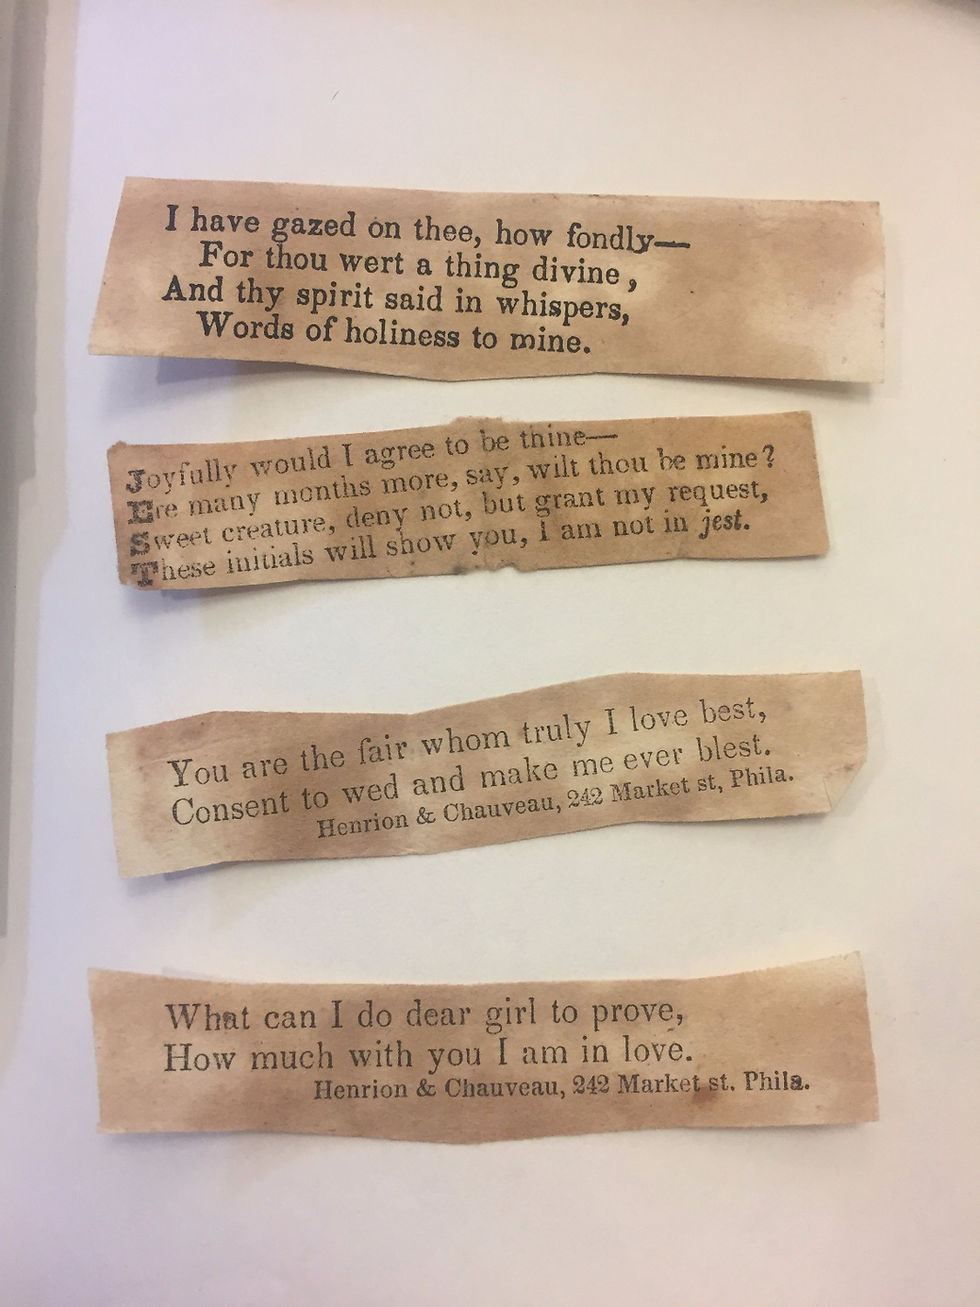 I have gazed on thee, how fondly—
For thou wert a thing divine,
And thy spirit said in whispers,
Words of holiness to mine.
Joyfully would I agree to be thine—
Ere many months more, say, wilt thou be mine?
Sweet creature, deny not, but grant my request,
These initials will show you, I am not in jest.
You are the fair whom truly I love best,
Consent to wed and make me ever blest.
Henrion & Chauveau, 242 Market st, Phila.
What can I do dear girl to prove,
How much with you I am in love.
Henrion & Chauveau, 242 Market st. Phila.